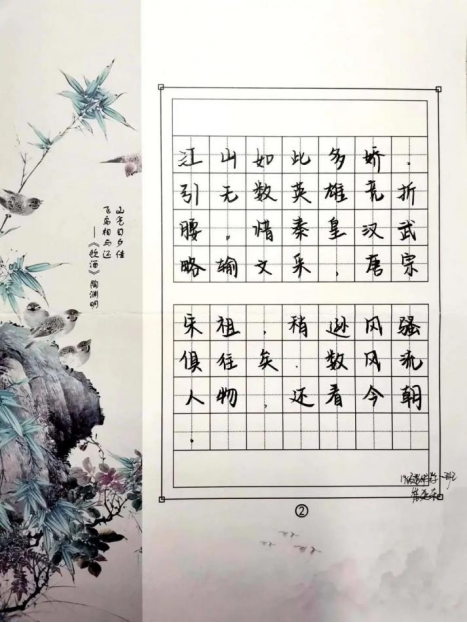 江山如此多娇.
引无数英雄竞折
腰。惜秦皇汉武
略输文采,唐宗
宋祖,稍逊风骚
俱往矣.数风流
人物,还看今朝
.
②
山气日夕佳
飞鸟相与还
——《饮酒》 陶渊明